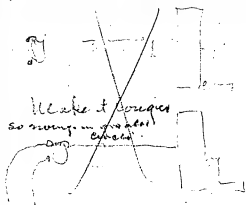 Make it longer
so swings in greater
circle